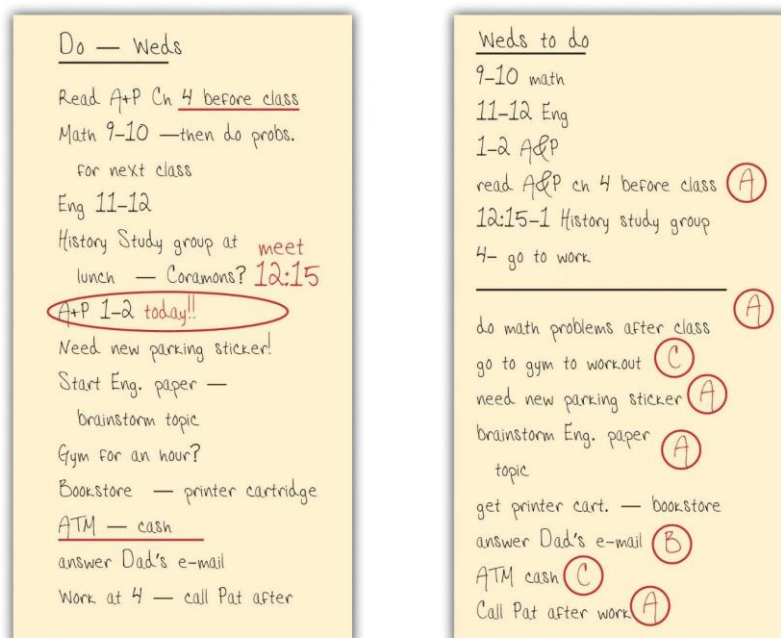 Do — Weds
Read A+P Ch 4 before class
Math 9–10 —then do probs.
for next class
Eng 11–12
History Study group at meet
lunch — Coramons? 12:15
A+P 1–2 today!!
Need new parking sticker!
Start Eng. paper —
brainstorm topic
Gym for an hour?
Bookstore — printer cartridge
ATM — cash
answer Dad's e-mail
Work at 4 — call Pat after
Weds to do
9–10 math
11–12 Eng
1–2 A&P
read A&P ch 4 before class A
12:15–1 History study group
4– go to work
A
do math problems after class
go to gym to workout C
need new parking sticker A
brainstorm Eng. paper A
topic
get printer cart. — bookstore
answer Dad's e-mail B
ATM cash C
Call Pat after work A